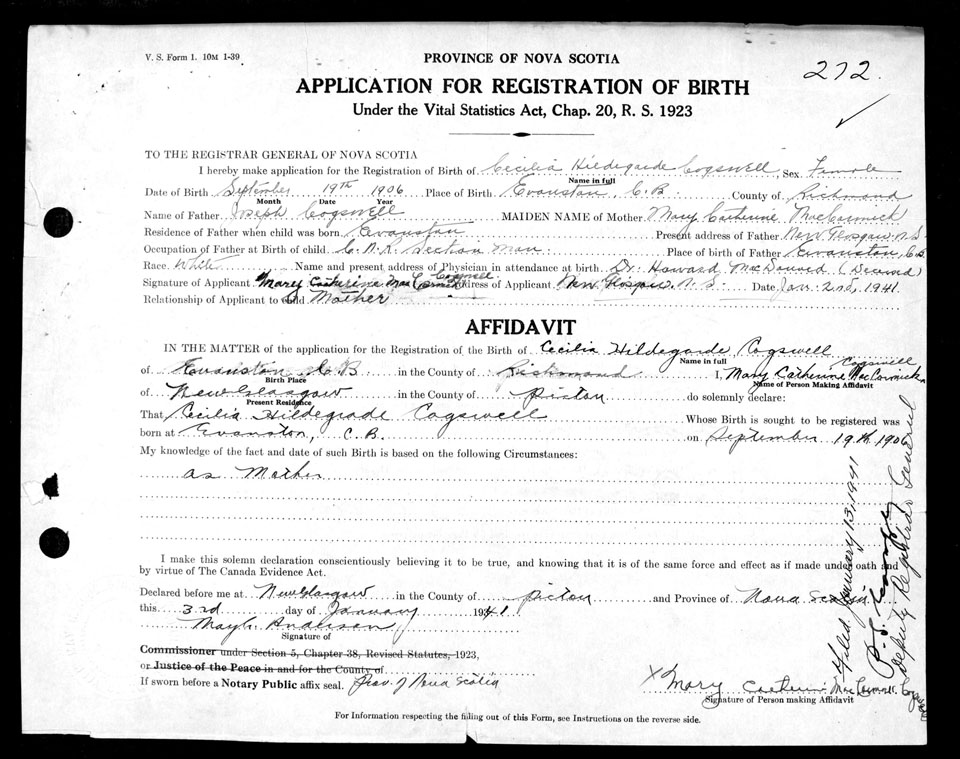 V. S. Form 1. 10M 1-39
PROVINCE OF NOVA SCOTIA
272.
APPLICATION FOR REGISTRATION OF BIRTH
Under the Vital Statistics Act, Chap. 20, R. S. 1923
TO THE REGISTRAR GENERAL OF NOVA SCOTIA
I hereby make application for the Registration of Birth of Cecilia Hildegarde Cogswell Sex Female
Name in full
Date of Birth September 19th 1906 Place of Birth Evanston, C.B. County of Richmond
Month Date Year
Name of Father Joseph Cogswell MAIDEN NAME of Mother Mary Catherine MacCormick
Residence of Father when child was born Evanston Present address of Father New Glasgow N.S.
Occupation of Father at Birth of child C.N.R. Section Man Place of birth of Father Evanston, C.B.
Race White Name and present address of Physician in attendance at birth Dr. Howard MacDonald (Deceased)
Cogswell
Signature of Applicant Mary Catherine MacCormick Address of Applicant New Glasgow, N.S. Date Jan. 2nd, 1941.
Relationship of Applicant to child Mother
AFFIDAVIT
IN THE MATTER of the application for the Registration of the Birth of Cecilia Hildegarde Cogswell
Name in full
Cogswell
of Evanston C.B in the County of Richmond I, Mary Catherine MacCormick
Birth Place
Name of Person Making Affidavit
of New Glasgow in the County of Pictou do solemnly declare:
Present Residence
That Cecilia Hildegrade Cogswell Whose Birth is sought to be registered was
born at Evanston, C.B. on September 19th 1906
My knowledge of the fact and date of such Birth is based on the following Circumstances:
as Mother
I make this solemn declaration conscientiously believing it to be true, and knowing that it is of the same force and effect as if made under oath and
by virtue of The Canada Evidence Act.
Declared before me at New Glasgow in the County of Pictou and Province of Nova Scotia
this 3rd day of January 1941
Anderson
Signature of
Commissioner under Section 5, Chapter 38, Revised Statutes, 1923,
or Justice of the Peace in and for the County of
If sworn before a Notary Public affix seal. Prov. of Nova Scotia
X Mary Catherine MacCormick
Signature of Person making Affidavit
For Information respecting the filling out of this Form, see Instructions on the reverse side.
Filed January 13, 1941
Deputy Registrar General